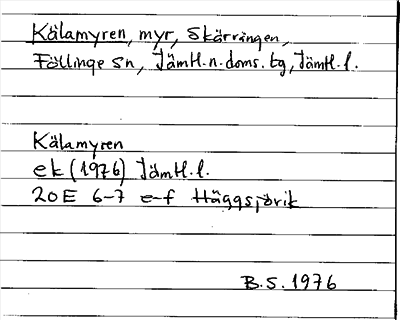 Kälamyren, myr, Skärvången,
Föllinge sn, Jämtl. n. doms. tg, Jämtl. l.
Kälamyren
ek (1976) Jämtl. l.
20E 6-7 e-f Häggsjövik
B. S. 1976